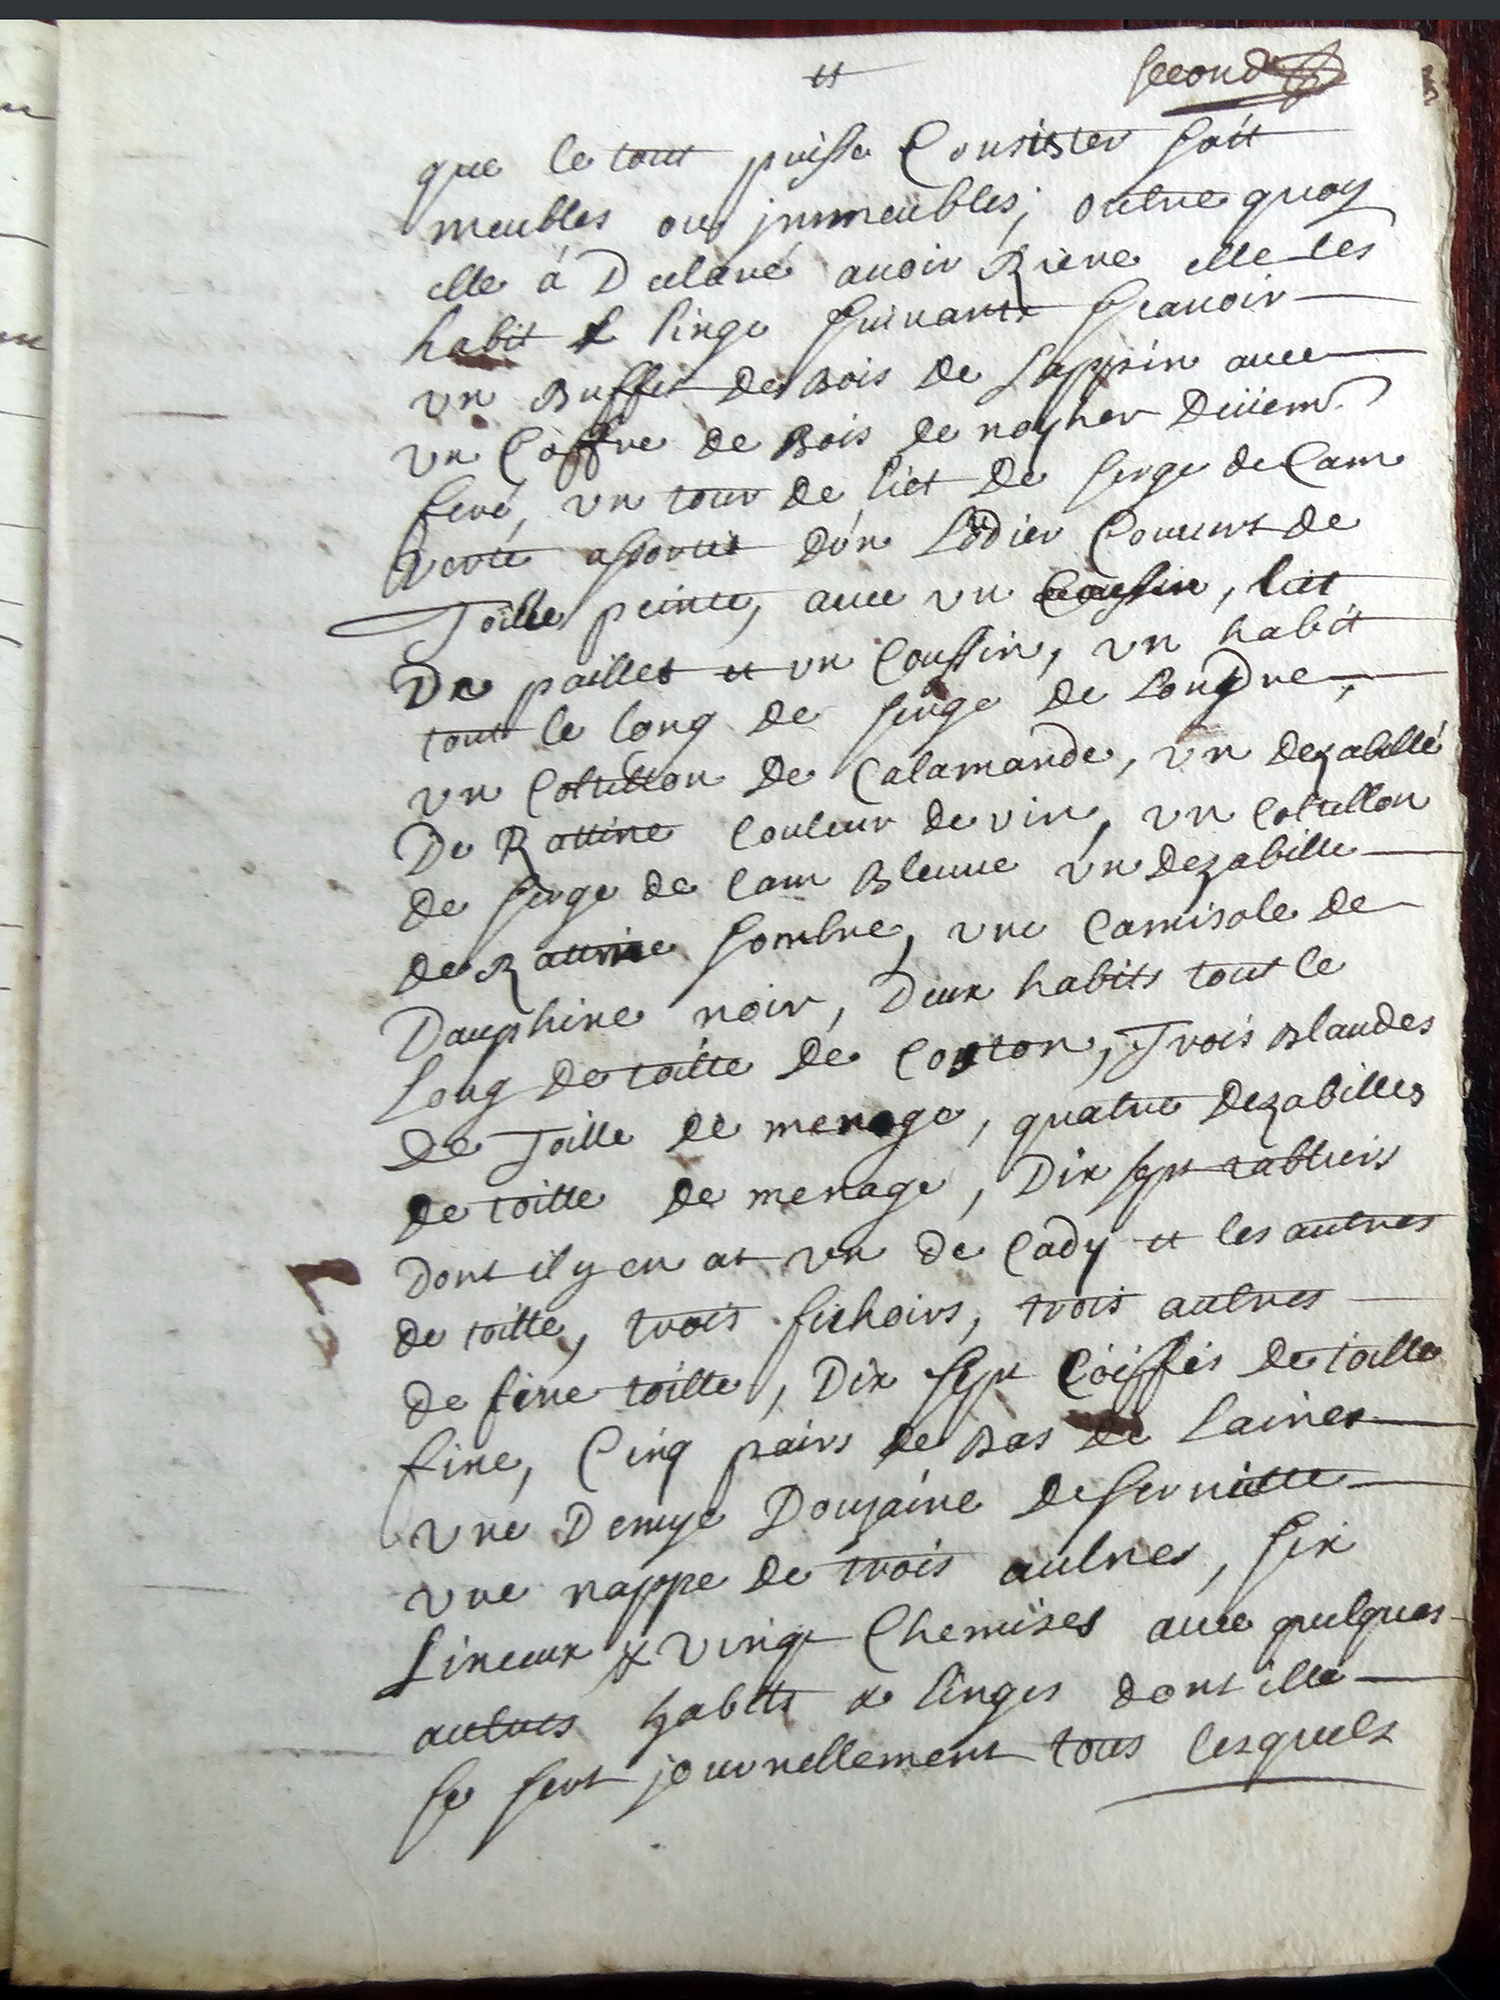 second
que le tout puisse Consister soit
meubles ou jmmeubles; outre quoy
elle à Declaré auoir Riere elle les
habit & linge suiuants scauoir
vn Buffet de Bois de sappin auec
vn Coffre de Bois de noyher
feré, vn tour de lict De serge de Cam
verte assortis d'vn Lodier Couuert de
Toille peinte, auec vn Coussin, lict
De pailles et vn Coussin, vn habit
tout le long de serge de Londre,
vn Cottillon De Calamande, vn dezabillé
De Rattine Couleur de vin, vn Cotillon
de serge de Cam Bleuue vn Dezabille
de Rattine sombre, vne Camisole de
Dauphine noir, Deux habits tout le
Long de toille De Cotton, Trois Blaudes
De Toille de menage, quatre Dezabilles
de toille de menage, Dix sept tabliers
Dont il y en at vn de Cady et les autres
de toille, trois fichoirs, trois autres
de fine toille, Dix sept Coiffes de toille
fine, Cinq pairs de Bas de Laines
vne Demye Douzaine de seruiette
vne nappe de trois aulnes, six
Linceux & vingt Chemises auec quelques
autres habits & linges dont elle
se sert journellement tous lesquels